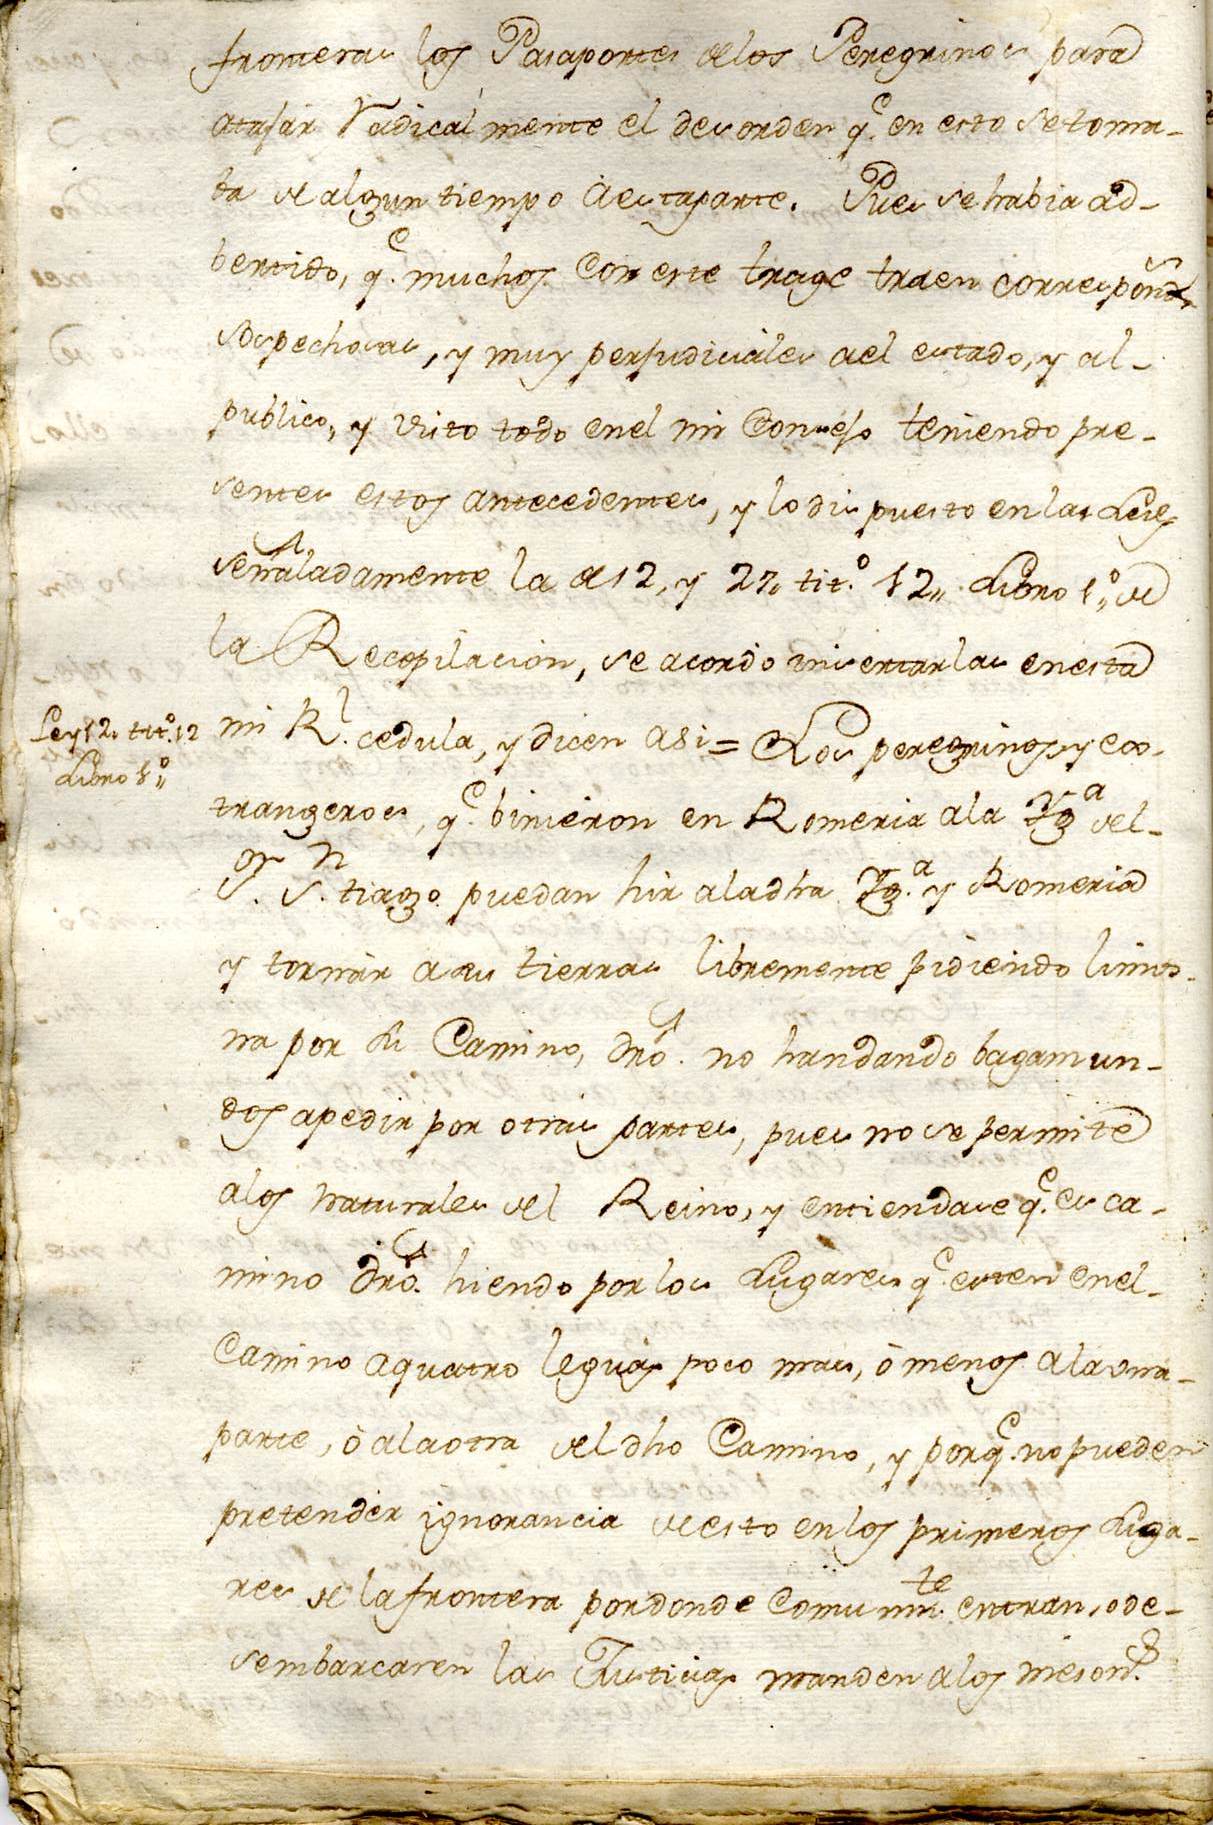 fronteras los Pasaportes de los Peregrinos para
atajar radicalmente el desorden q.e en esto se toma-
ba de algun tiempo à esta parte. Pues se habia ad-
bertido, q.e muchos con este trage traen correspond.s
sospechosas, y muy perjudiciales a el estado, y al
publico, y visto todo en el mi Consejo teniendo pre-
sentes estos antecedentes, y lo dispuesto en las Leies
señaladamente la de 12, y 27, tit.o 12,, Libro 1,,o de
la Recopilacion, se acordo insertarlas en esta
Ley 12. tit.o 12
Libro 1,,o
mi R.l cedula, y dicen asi = Los peregrinos, y ex-
trangeros, q.e binieron en Romeria a la Yg.a del
S.or S.n tiago puedan hir a la dha Yg.a y Romeria
y tornar a sus tierras libremente pidiendo limos-
na por su Camino, dro. no handando bagamun-
dos a pedir por otras partes, pues no se permite
a los naturales del Reino, y entiendase q.e es ca-
mino dro. hiendo por los Lugares q.e esten en el
Camino a quatro leguas poco mas, ò menos a la una
parte, ò a la otra del dho Camino, y porq.e no pueden
pretender ignorancia de esto en los primeros Luga-
res de la frontera por donde comunm.te entran, o de-
sembarcaren las Justicias manden a los meson.s